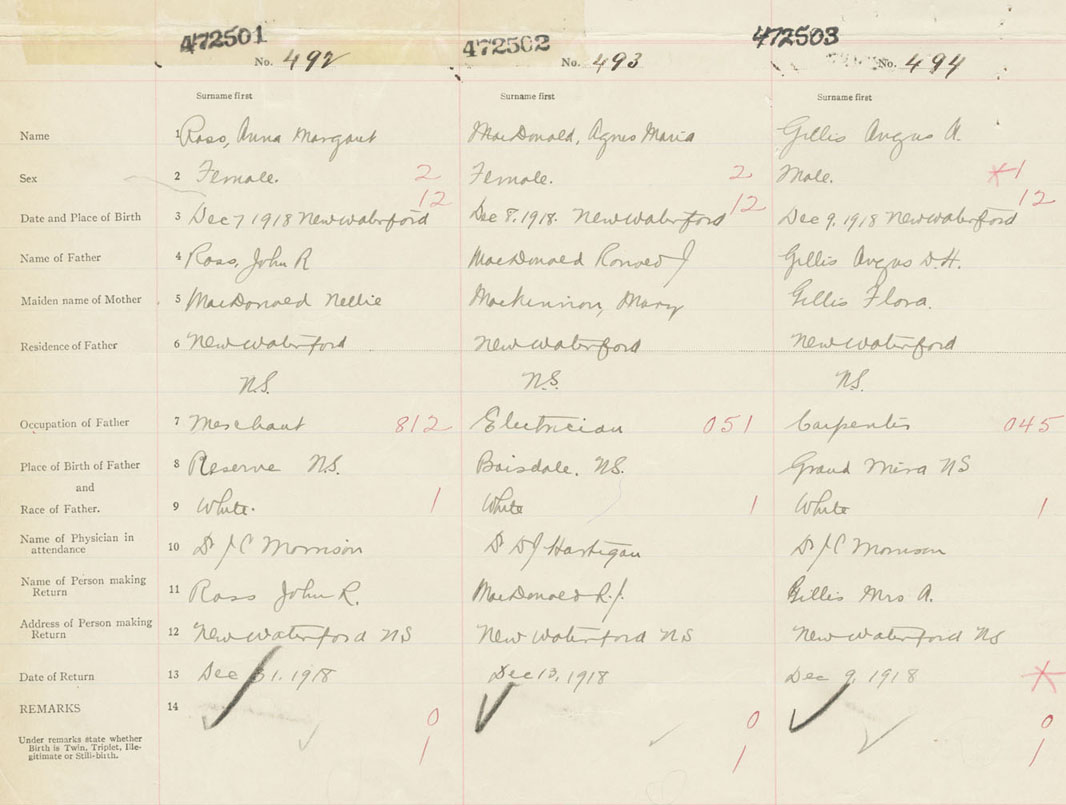 472501 472502 472503
No. 492 No. 493 No. 494
Surname first Surname first Surname first
Name 1 Ross, Anna Margaret MacDonald, Agnes Maria Gillis Angus A.
Sex 2 Female. 2 Female. 2 Male. 1
12 12 12
Date and Place of Birth 3 Dec 7 1918 New Waterford Dec 8. 1918. New Waterford Dec 9, 1918 New Waterford
Name of Father 4 Ross, John R MacDonald Ronald J Gillis Angus D.H.
Maiden name of Mother 5 MacDonald Nellie MacKinnon, Mary Gillis Flora.
Residence of Father 6 New Waterford New Waterford New Waterford
N.S. N.S. N.S.
Occupation of Father 7 Merchant 812 Electrician 051 Carpenter 045
Place of Birth of Father 8 Reserve N.S. Boisdale. N.S. Grand Mira NS
and
Race of Father. 9 White. 1 White 1 White 1
Name of Physician in
attendance 10 Dr J C Morrison Dr D J Hartigan Dr J C Morrison
Name of Person making
Return 11 Ross John R. MacDonald R.J. Gillis Mrs A.
Address of Person making
Return 12 New Waterford NS New Waterford NS New Waterford NS
Date of Return 13 Dec 31. 1918 Dec 13, 1918 Dec 9, 1918
REMARKS 14
0 0 0
Under remarks state whether
Birth is Twin, Triplet, Ille-
gitimate or Still-birth.
1 1 1